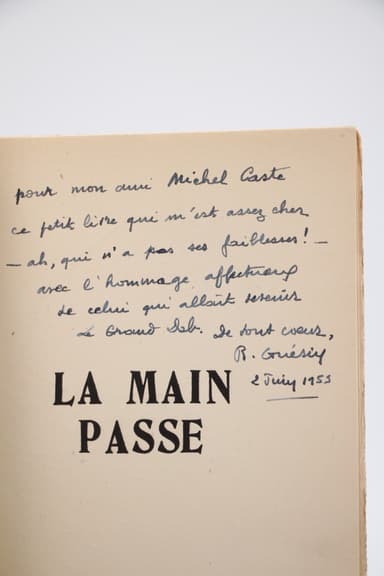 pour mon ami Michel Caste
ce petit livre qui m'est assez cher
— ah, qui n'a pas ses faiblesses! —
avec l'hommage affectueux
de celui qui allait devenir
Le Grand Deb. De tout coeur,
R. Guérin
2 Juin 1953
LA MAIN
PASSE